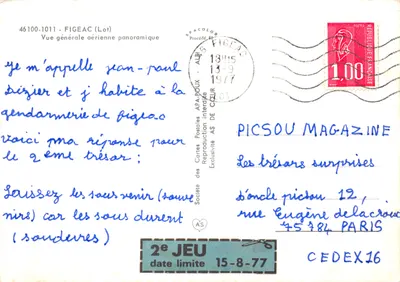 46100-1011 - FIGEAC (Lot)
Vue générale aérienne panoramique
je m'appelle jean-paul
Dizier et j habite à la
gendarmerie de figeac
voici ma réponse pour
le 2ème trésor:
Laissez les sous venir (souve
nirs) car les sous durent
(soudures)
Societe des Cartes Postales APA-POUX - ALBI
Reproduction interdite
Exclusivité AS DE CŒUR
FIGEAC
18H15
13-9
1977
REPUBLIQUE FRANÇAISE
1,00
PICSOU MAGAZINE
Les trésors surprises
d'oncle picson 12,
rue Eugène delacroux
75784 PARIS
CEDEX 16
2e JEU
date limite 15-8-77